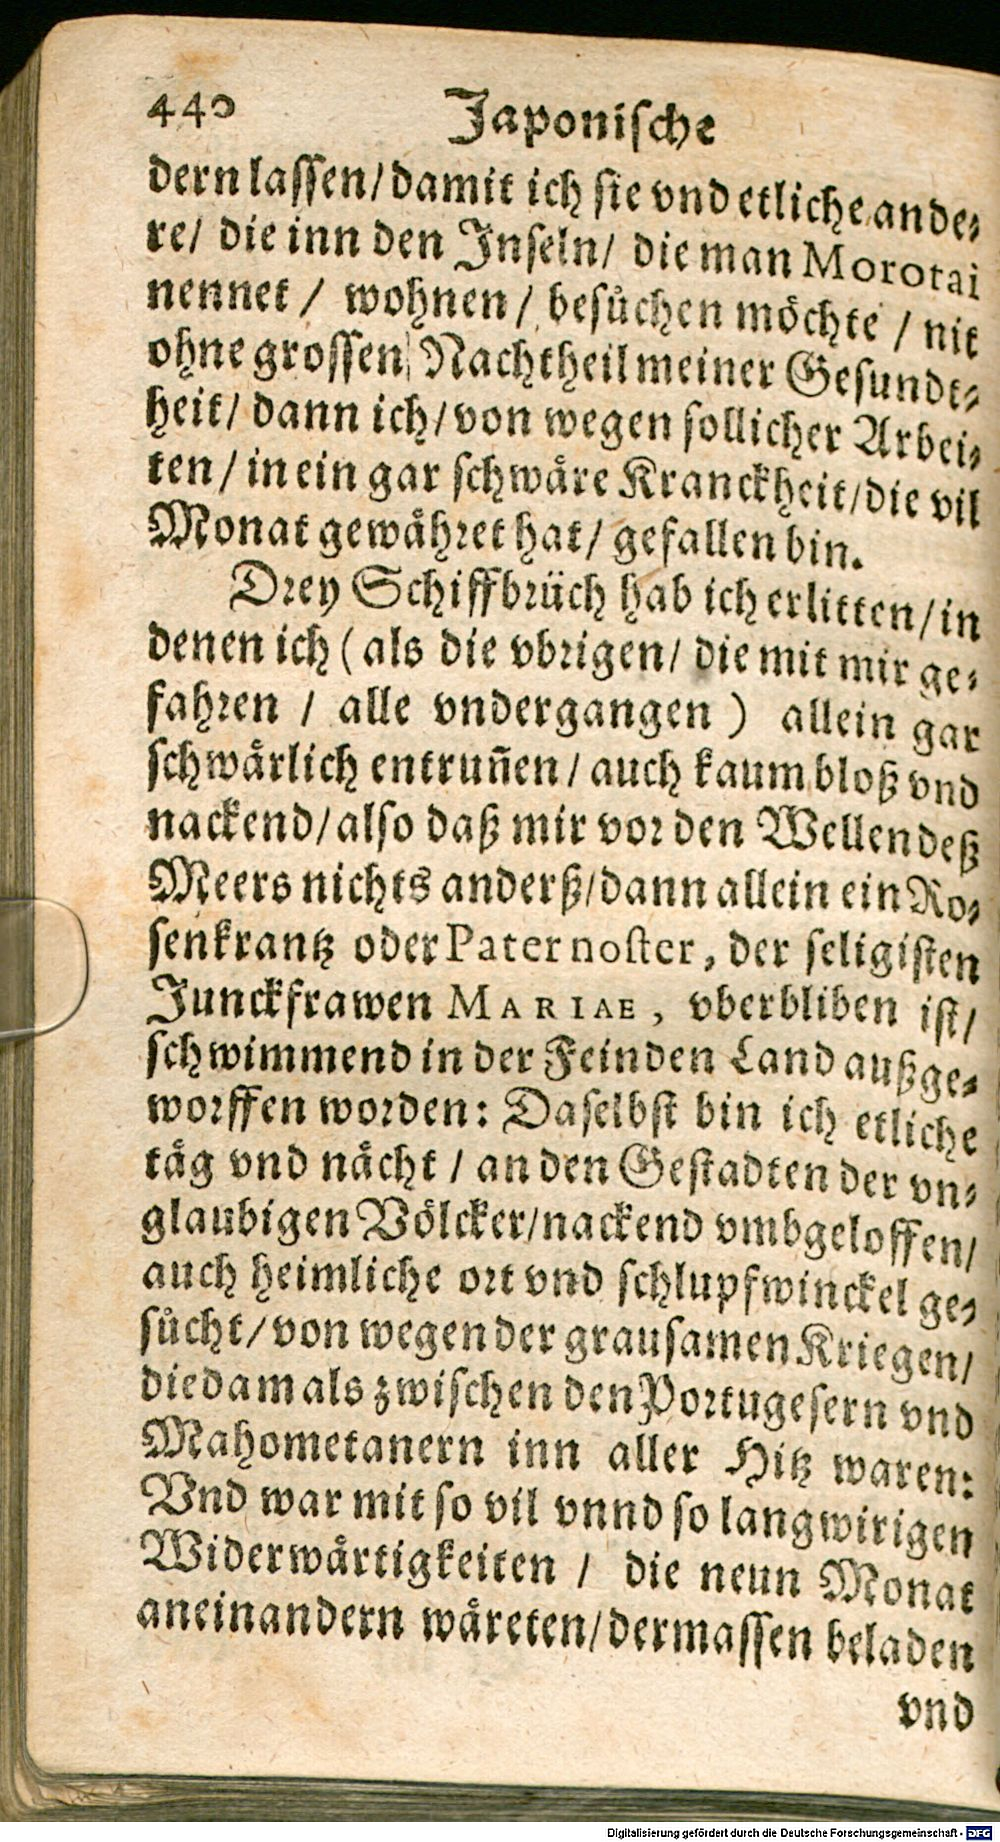 440 Japonische
dern lassen/ damit ich sie vnd etliche ande⸗
re/ die inn den Inseln/ die man Morotai
nennet / wohnen / besůchen möchte / nit
ohne grossen Nachtheil meiner Gesundt⸗
heit/ dann ich/ von wegen sollicher Arbei⸗
ten/ in ein gar schwåre Kranckheit/ die vil
Monat gewåhret hat/ gefallen bin.
Drey Schiffbrüch hab ich erlitten/ in
denen ich (als die vbrigen/ die mit mir ge⸗
fahren / alle vndergangen) allein gar
schwårlich entruñen/ auch kaum bloß vnd
nackend/ also daß mir vor den Wellen deß
Meers nichts anderß/ dann allein ein Ro⸗
senkrantz oder Pater noster, der seligisten
Junckfrawen MARIAE, vberbliben ist/
schwimmend in der Feinden Land außge⸗
worffen worden: Daselbst bin ich etliche
tåg vnd nåcht / an den Gestadten der vn⸗
glaubigen Völcker/ nackend vmbgeloffen/
auch heimliche ort vnd schlupfwinckel ge⸗
sůcht/ von wegen der grausamen Kriegen/
die damals zwischen den Portugesern vnd
Mahometanern inn aller Hitz waren:
Vnd war mit so vil vnnd so langwirigen
Widerwårtigkeiten / die neun Monat
aneinandern wåreten/ dermassen beladen
vnd
Digitalisierung gefördert durch die Deutsche Forschungsgemeinschaft - DFG